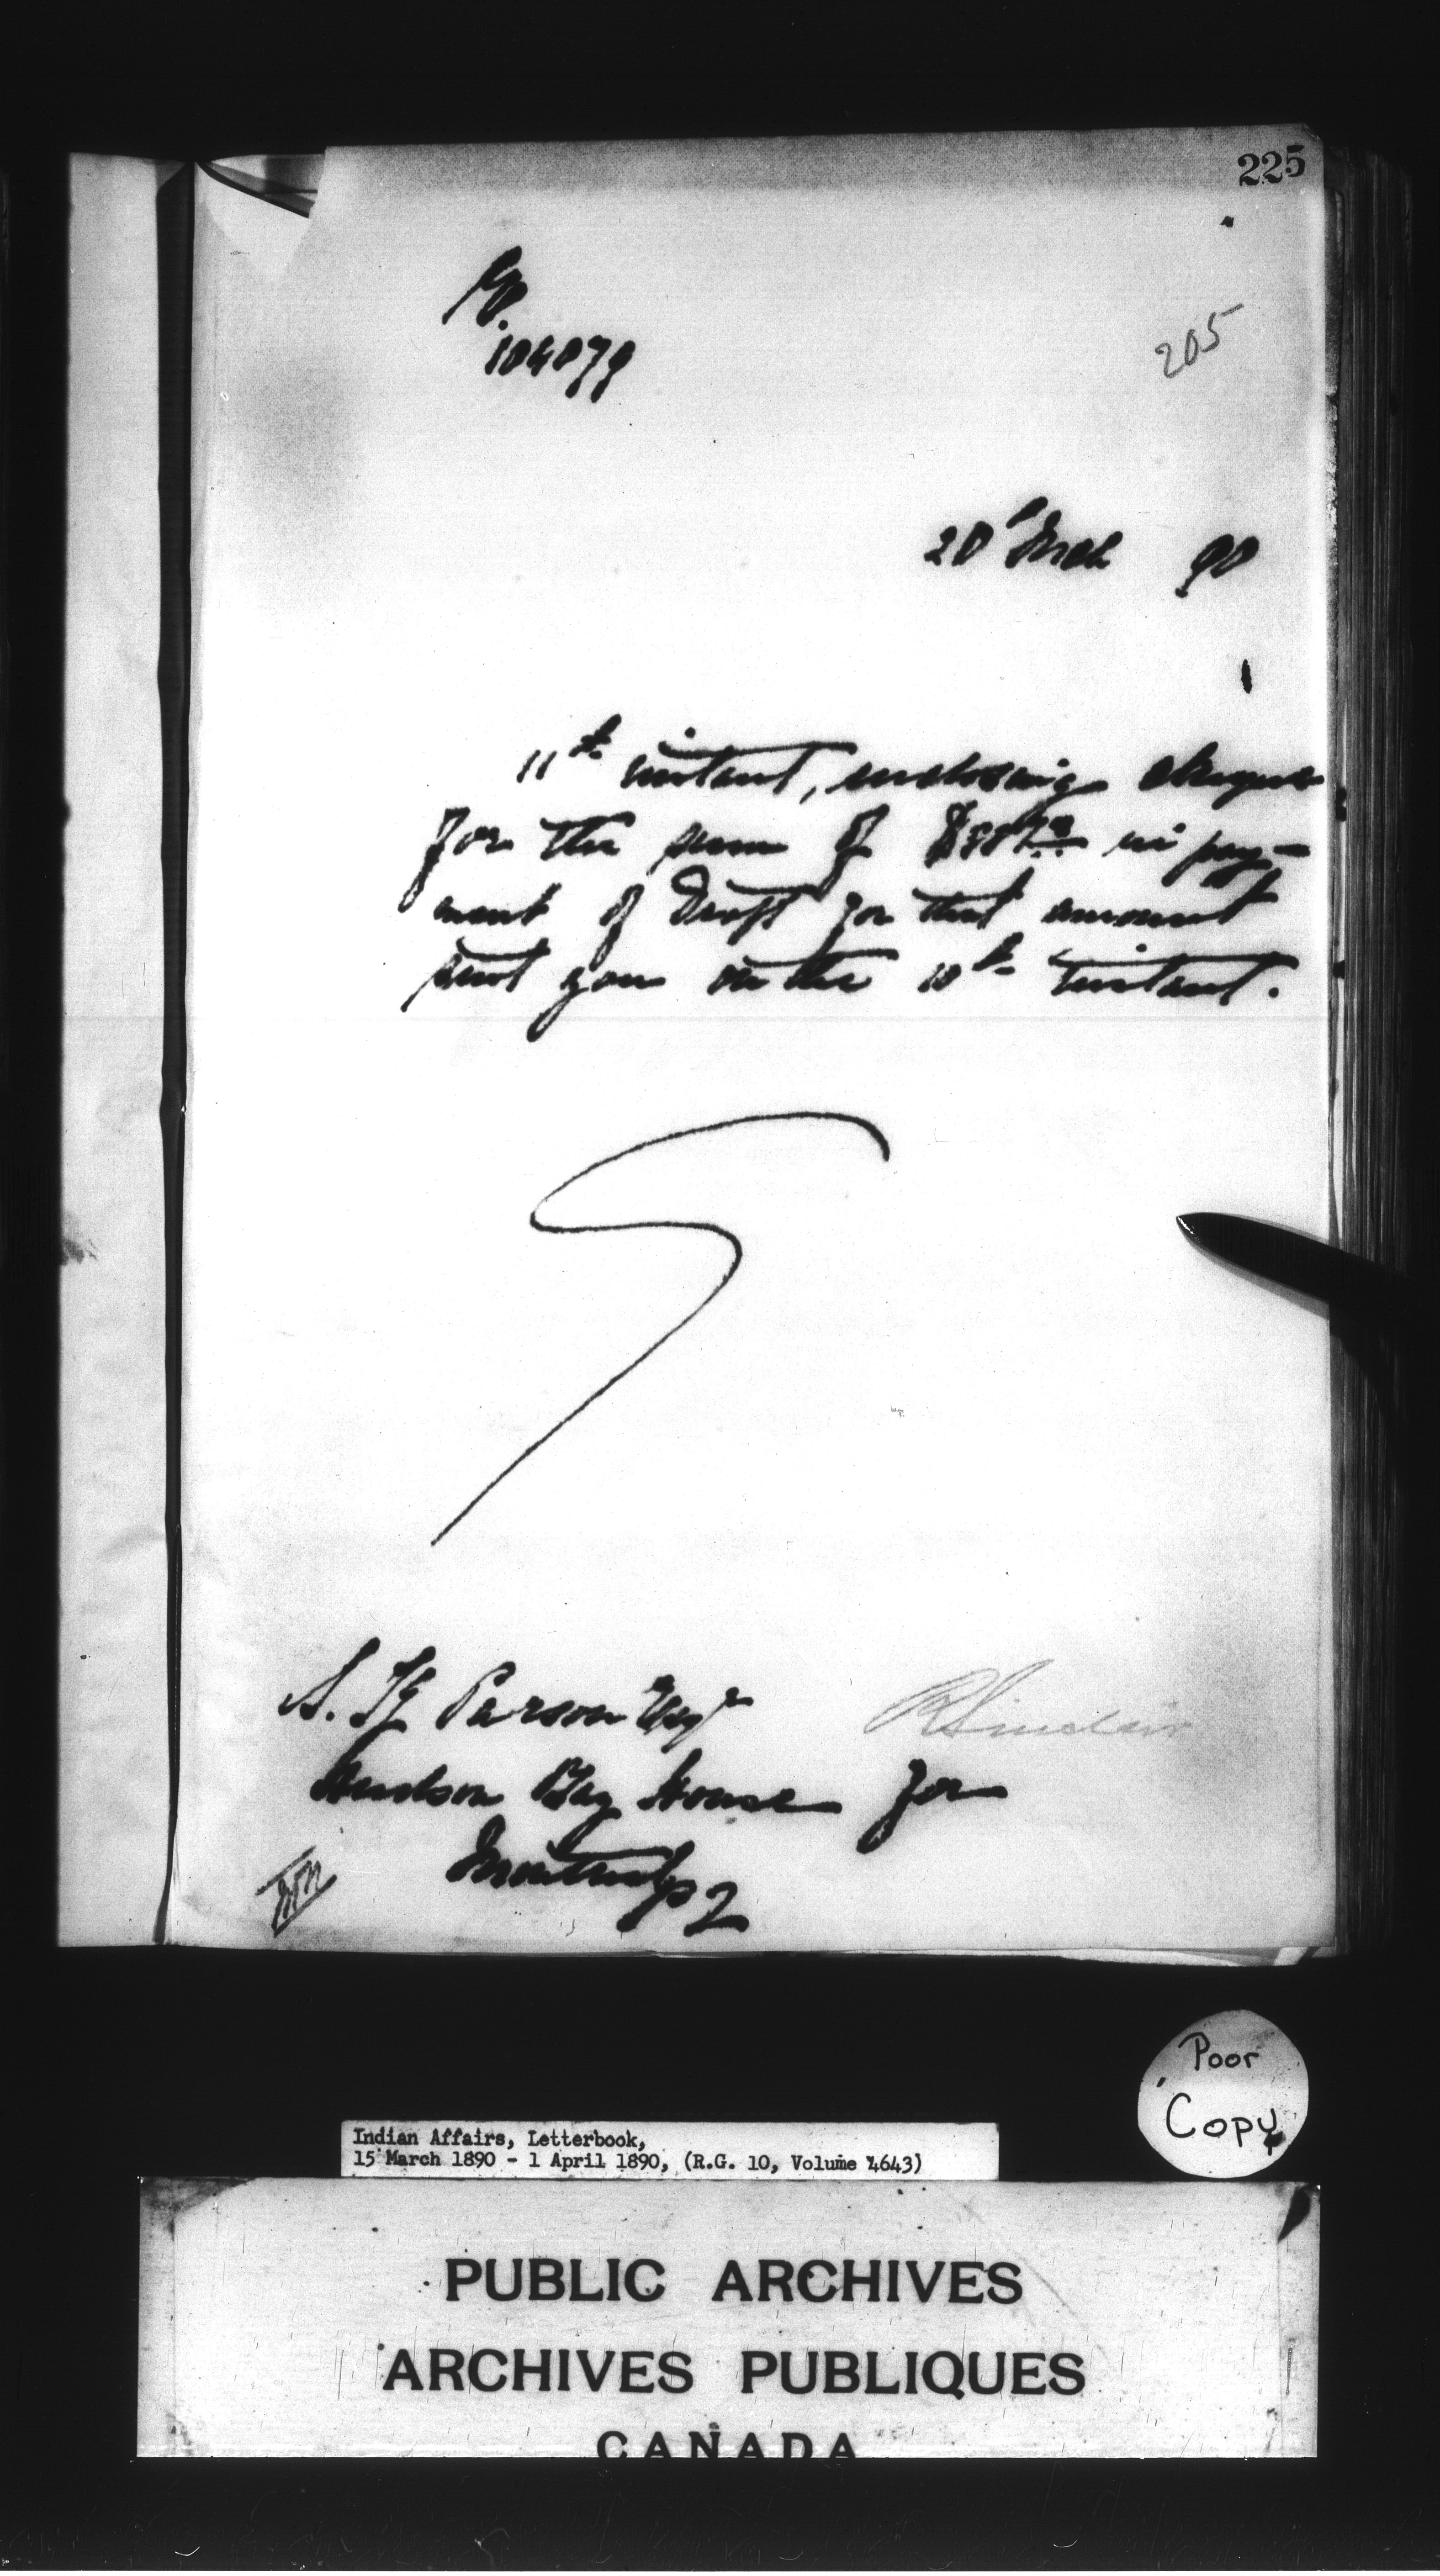 225
104079
205
20 Mch 90
11th instant, enclosing cheque
for the sum of in pay-
ment of Draft for that amount
sent you on the 10th instant.
S. K. Parson Esqr
R Sinclair
Hudson Bay House for
Montreal
Poor
Copy
Indian Affairs, Letterbook,
15 March 1890 - 1 April 1890, (R.G. 10, Volume 4643)
PUBLIC ARCHIVES
ARCHIVES PUBLIQUES
CANADA